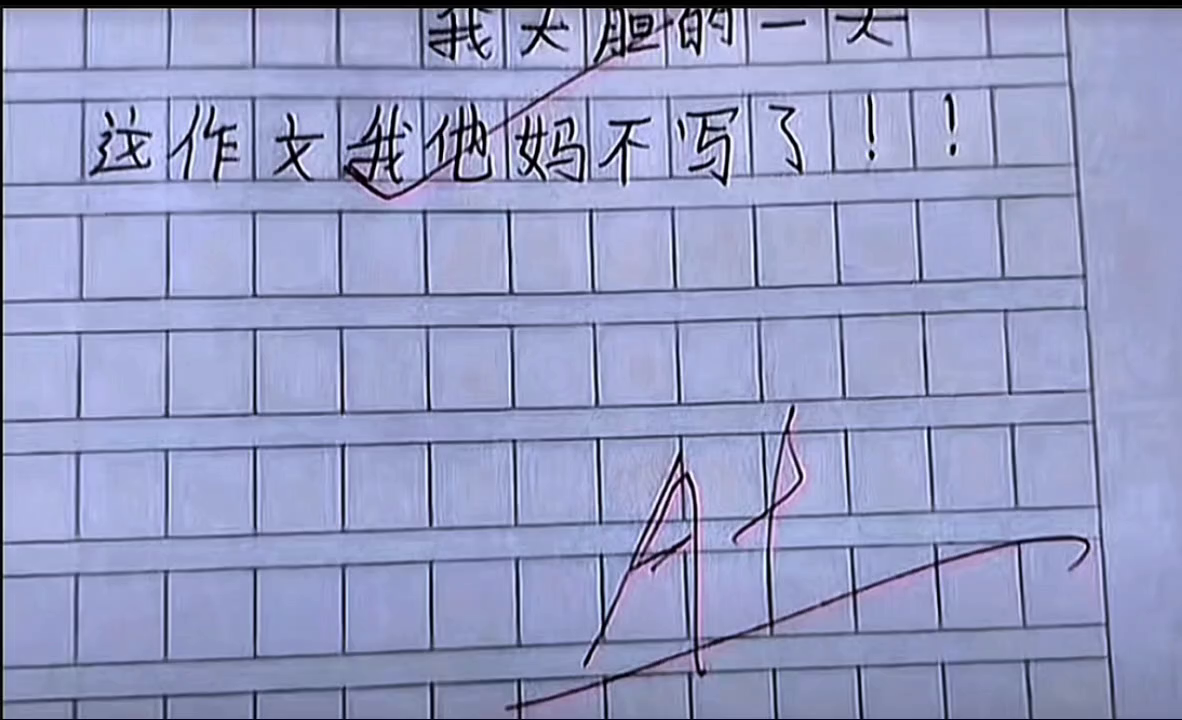 我大胆的一天
这作文我他妈不写了！！
A+